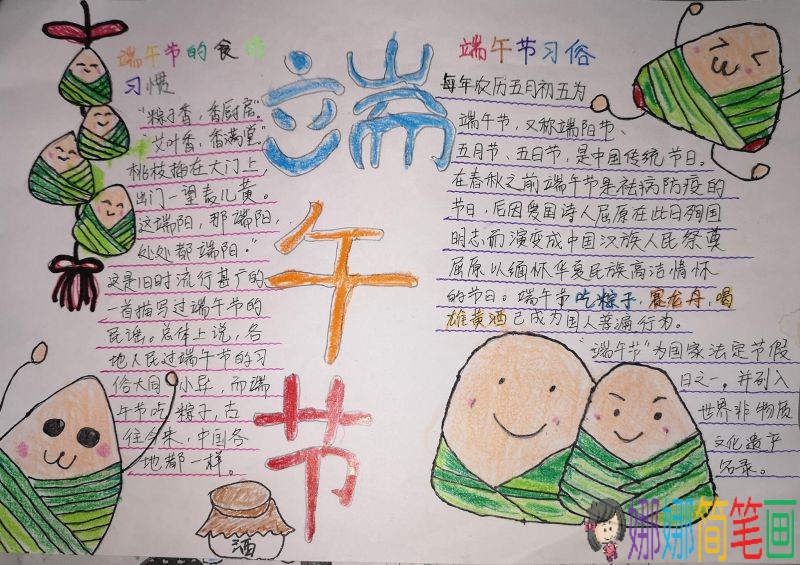 端午节的食俗
习惯
"粽子香，香厨房。
"艾叶香，香满堂"。
桃枝插在大门上，
出门一望麦儿黄。
这端阳，那端阳，
处处都端阳。"
这是旧时流行甚广的
一首描写过端午节的
民谣。总体上说，各
地人民过端午节的习
俗大同小异，而端
午节吃粽子，古
往今来，中国各
地都一样。
端
午
节
酒
端午节习俗
每年农历五月初五为
端午节，又称端阳节、
五月节、五日节，是中国传统节日。
在春秋之前端午节是祛病防疫的
节日，后因爱国诗人屈原在此日殉国
明志而演变成中国汉族人民祭奠
屈原以缅怀华夏民族高洁情怀
的节日。端午节吃粽子，赛龙舟，喝
雄黄酒已成为国人普遍行为。
"端午节"为国家法定节假
日之一，并列入
世界非物质
文化遗产
名录。
娜娜简笔画